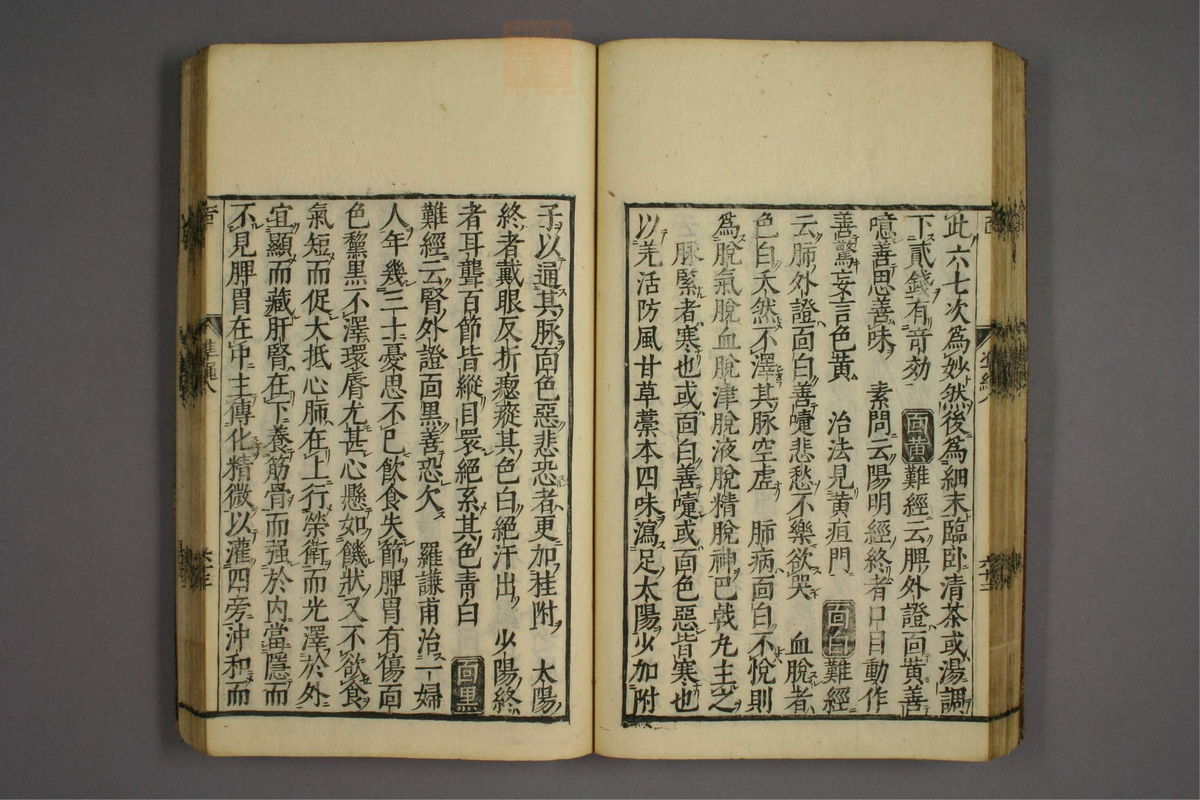 此六七次為妙然後為細末臨臥清茶或湯調
下貳錢有竒効 面黃難經云脾外證面黃善
噫善思善味 素問云陽明經終者口目動作
善驚妄言色黃 治法見黃疸門 面白難經
云肺外證面白善嚏悲愁不樂欲哭 血脫者
色白夭然不澤其脉空虛 肺病面白不悅則
為脫氣脫血脫津脫液脫精脫神巴戟丸主之
脉緊者寒也或面白善嚏或面色惡皆寒也
以羌活防風甘草藁本四味瀉足太陽少加附
子以通其脉面色惡悲恐者更加桂附 太陽
終者戴眼反折瘛瘲其色白絕汗出 少陽終
者耳聾百節皆縱目睘絕系其色青白 面黑
難經云腎外證面黑善恐欠 羅謙甫治一婦
人年幾三十憂思不已飲食失節脾胃有傷面
色黧黑不澤環唇尤甚心懸如饑狀又不欲食
氣短而促大抵心肺在上行榮衛而光澤於外
宜顯而藏肝腎在下養筋骨而强於內當隱而
不見脾胃在中主傳化精微以灌四旁沖和而
準繩八